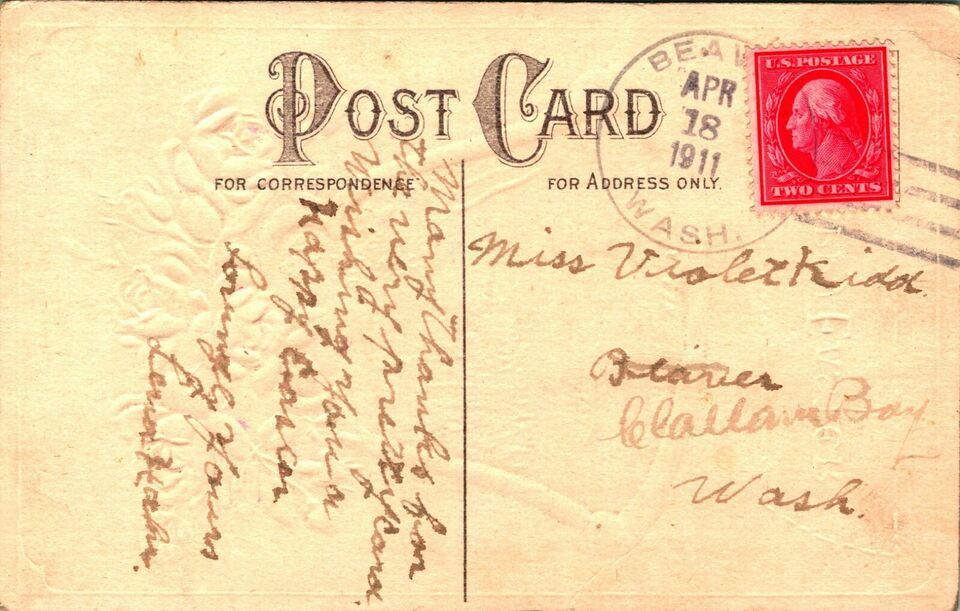 POST CARD
FOR CORRESPONDENCE
FOR ADDRESS ONLY.
BEAV
APR
18
1911
WASH.
U.S. POSTAGE
TWO CENTS
Miss Violet Kidd
Beaver
Clallam Bay
Wash.
Many Thanks for
the very pretty card
Wishing you a
happy Easter
Yours
Lena